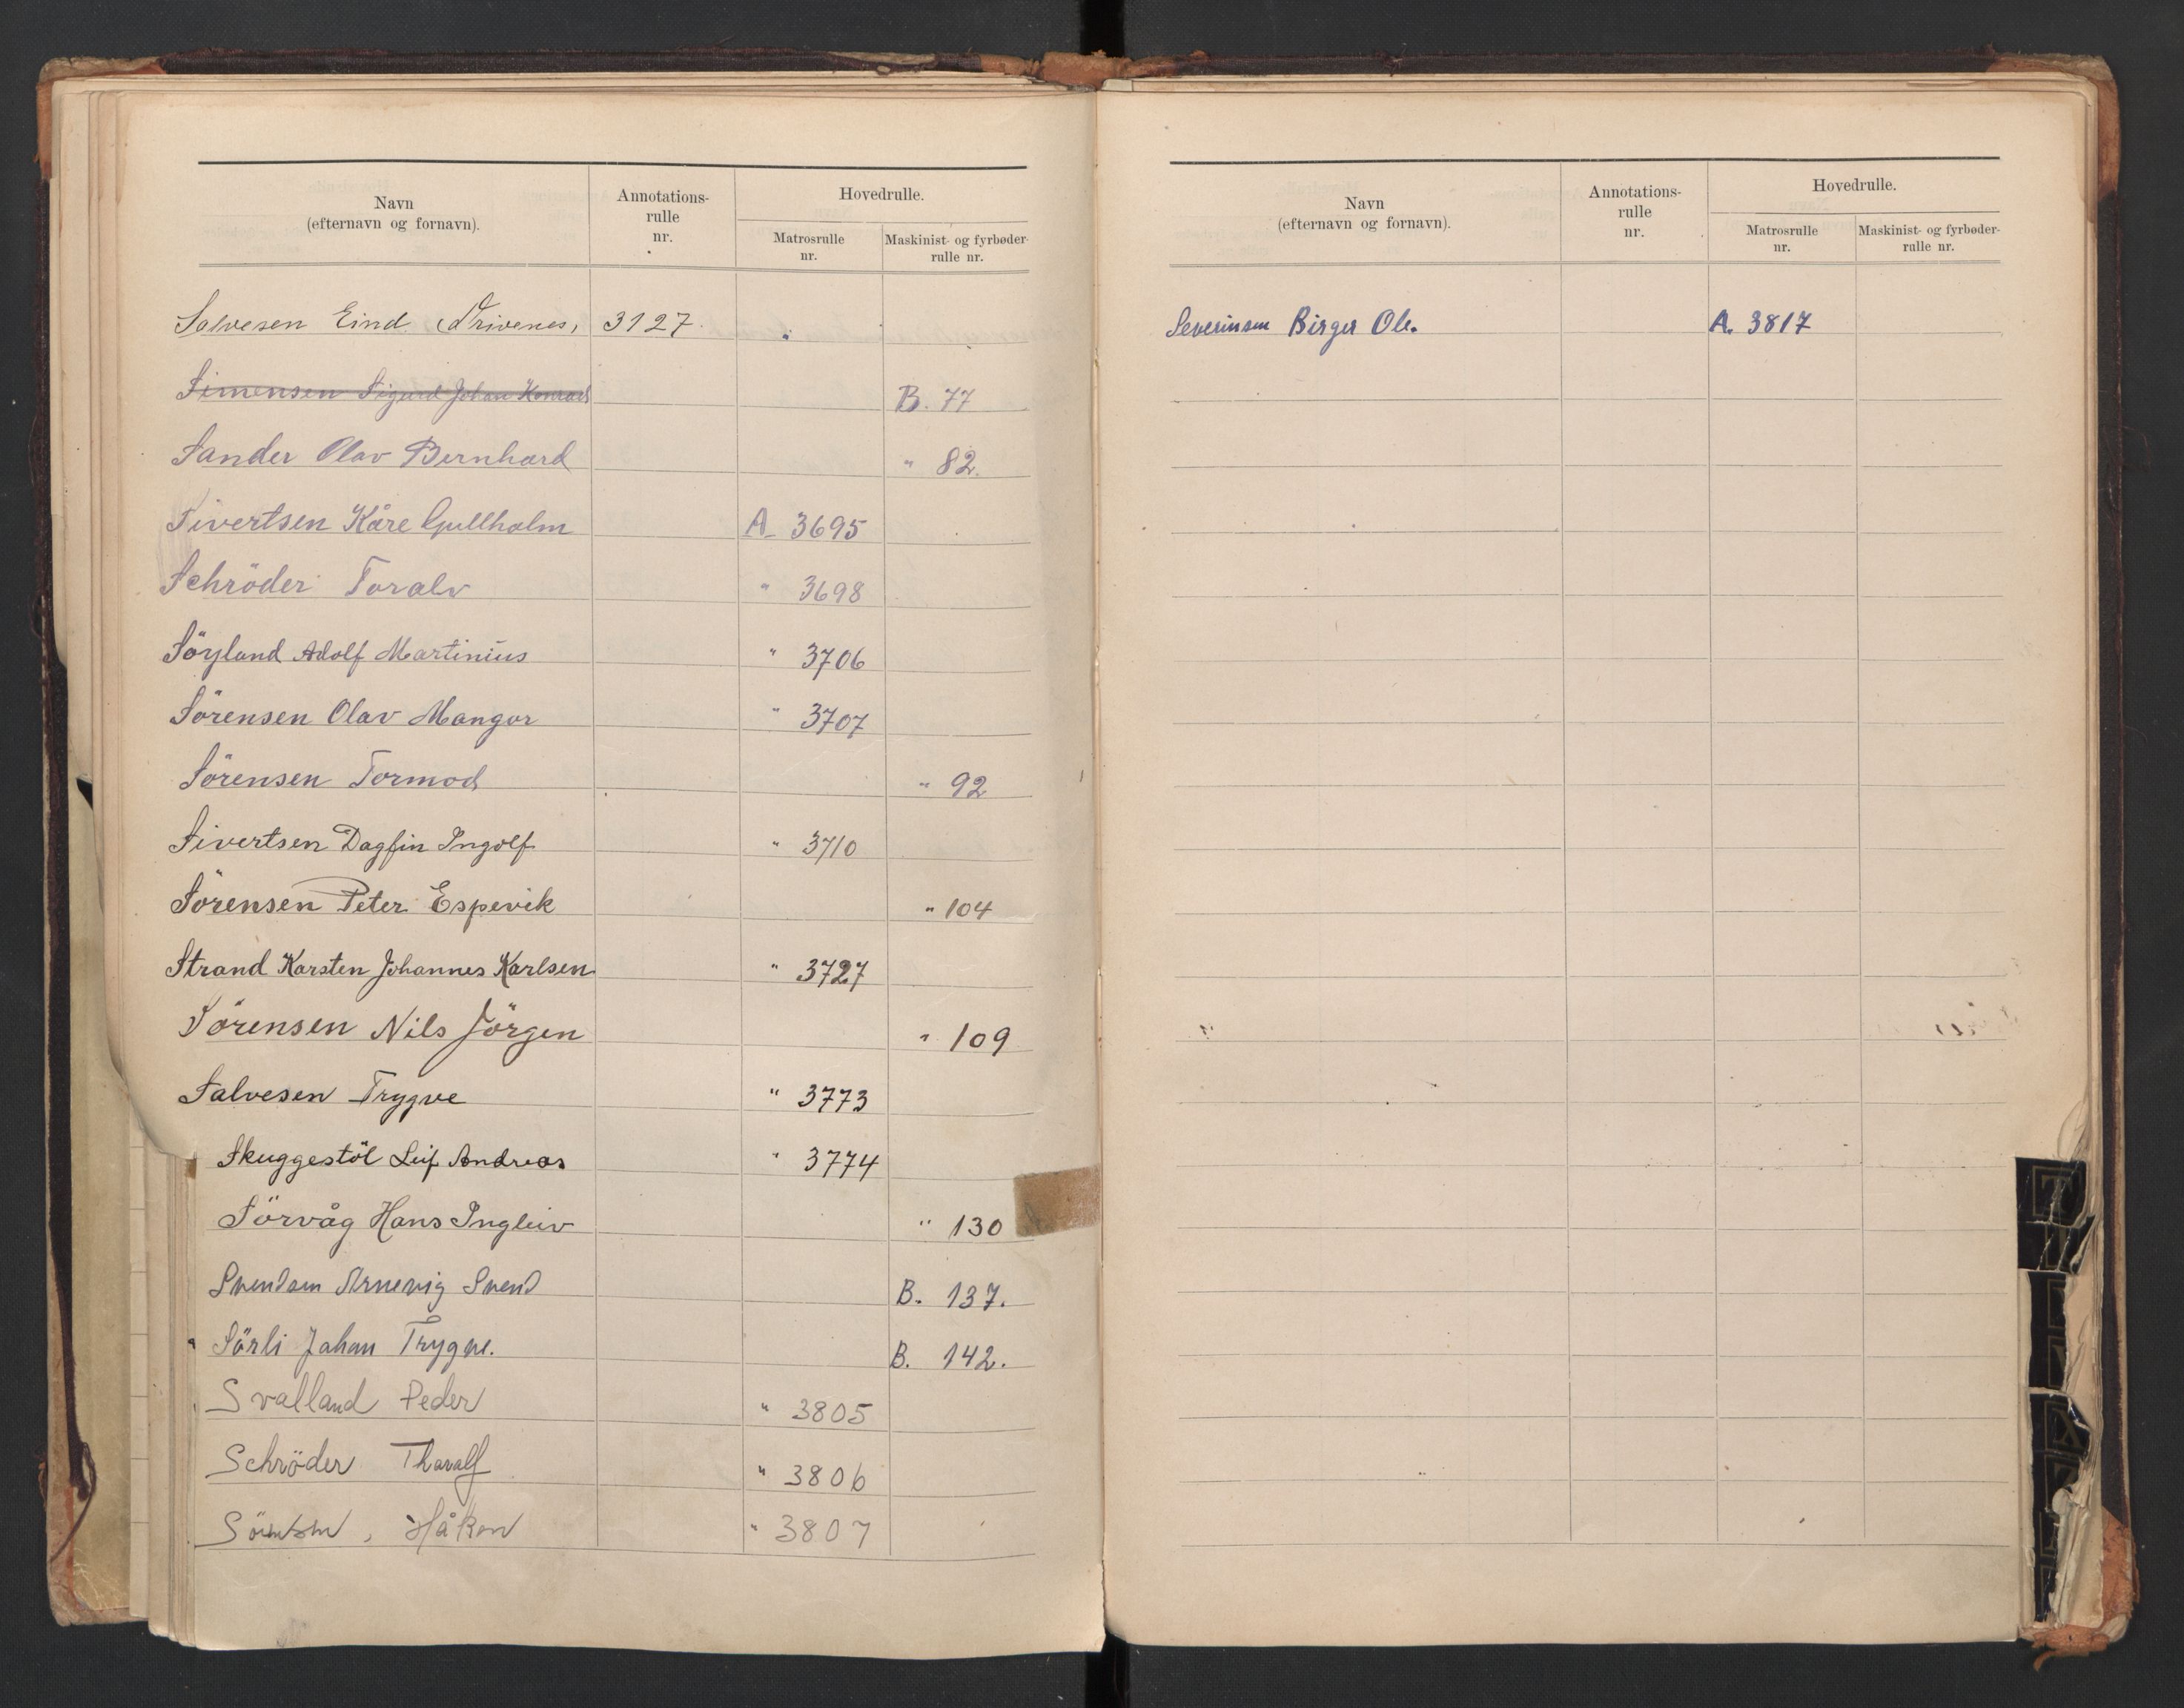 Navn
(efternavn og fornavn).
Annotations-
rulle
nr.
Hovedrulle.
Matrosrulle
nr.
Maskinist- og fyrbøder-
rulle nr.
Salvesen Eind. (Drivenes) 3127. "
Simensen Sigurd Johan Konrad B. 77
Sander Olav Bernhard " 82.
Sivertsen Kåre Gullholm A 3695
Schröder Toralv " 3698
Söyland Adolf Martinius " 3706
Sörensen Olav Mangor " 3707
Sörensen Tormod " 92
Sivertsen Dagfin Ingolf " 3710
Sörensen Peter Espevik " 104
Strand Karsten Johannes Karlsen " 3727
Sörensen Nils Jörgen " 109
Salvesen Trygve " 3773
Skuggestöl Leif Andreas " 3774
Sörvåg Hans Ingleiv " 130
Svendsen Arnevig Svend B. 137.
Sörli Johan Trygve. B. 142.
Svalland Peder " 3805
Schröder Tharalf " 3806
Håkon " 3807
Navn
(efternavn og fornavn).
Annotations-
rulle
nr.
Hovedrulle.
Matrosrulle
nr.
Maskinist- og fyrbøder-
rulle nr.
Severinsen Birger Ole. A. 3817
T
X